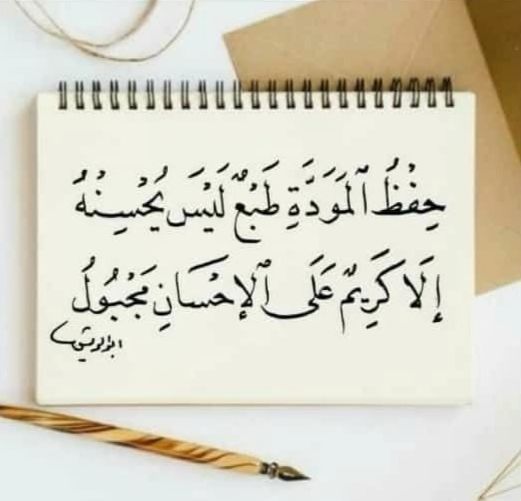 حِفْظُ ٱلْمَوَدَّةِ طَبْعٌ لَيْسَ يُحْسِنْهُ
إِلَّا كَرِيمٌ عَلَى ٱلْإِحْسَانِ مَجْبُولُ